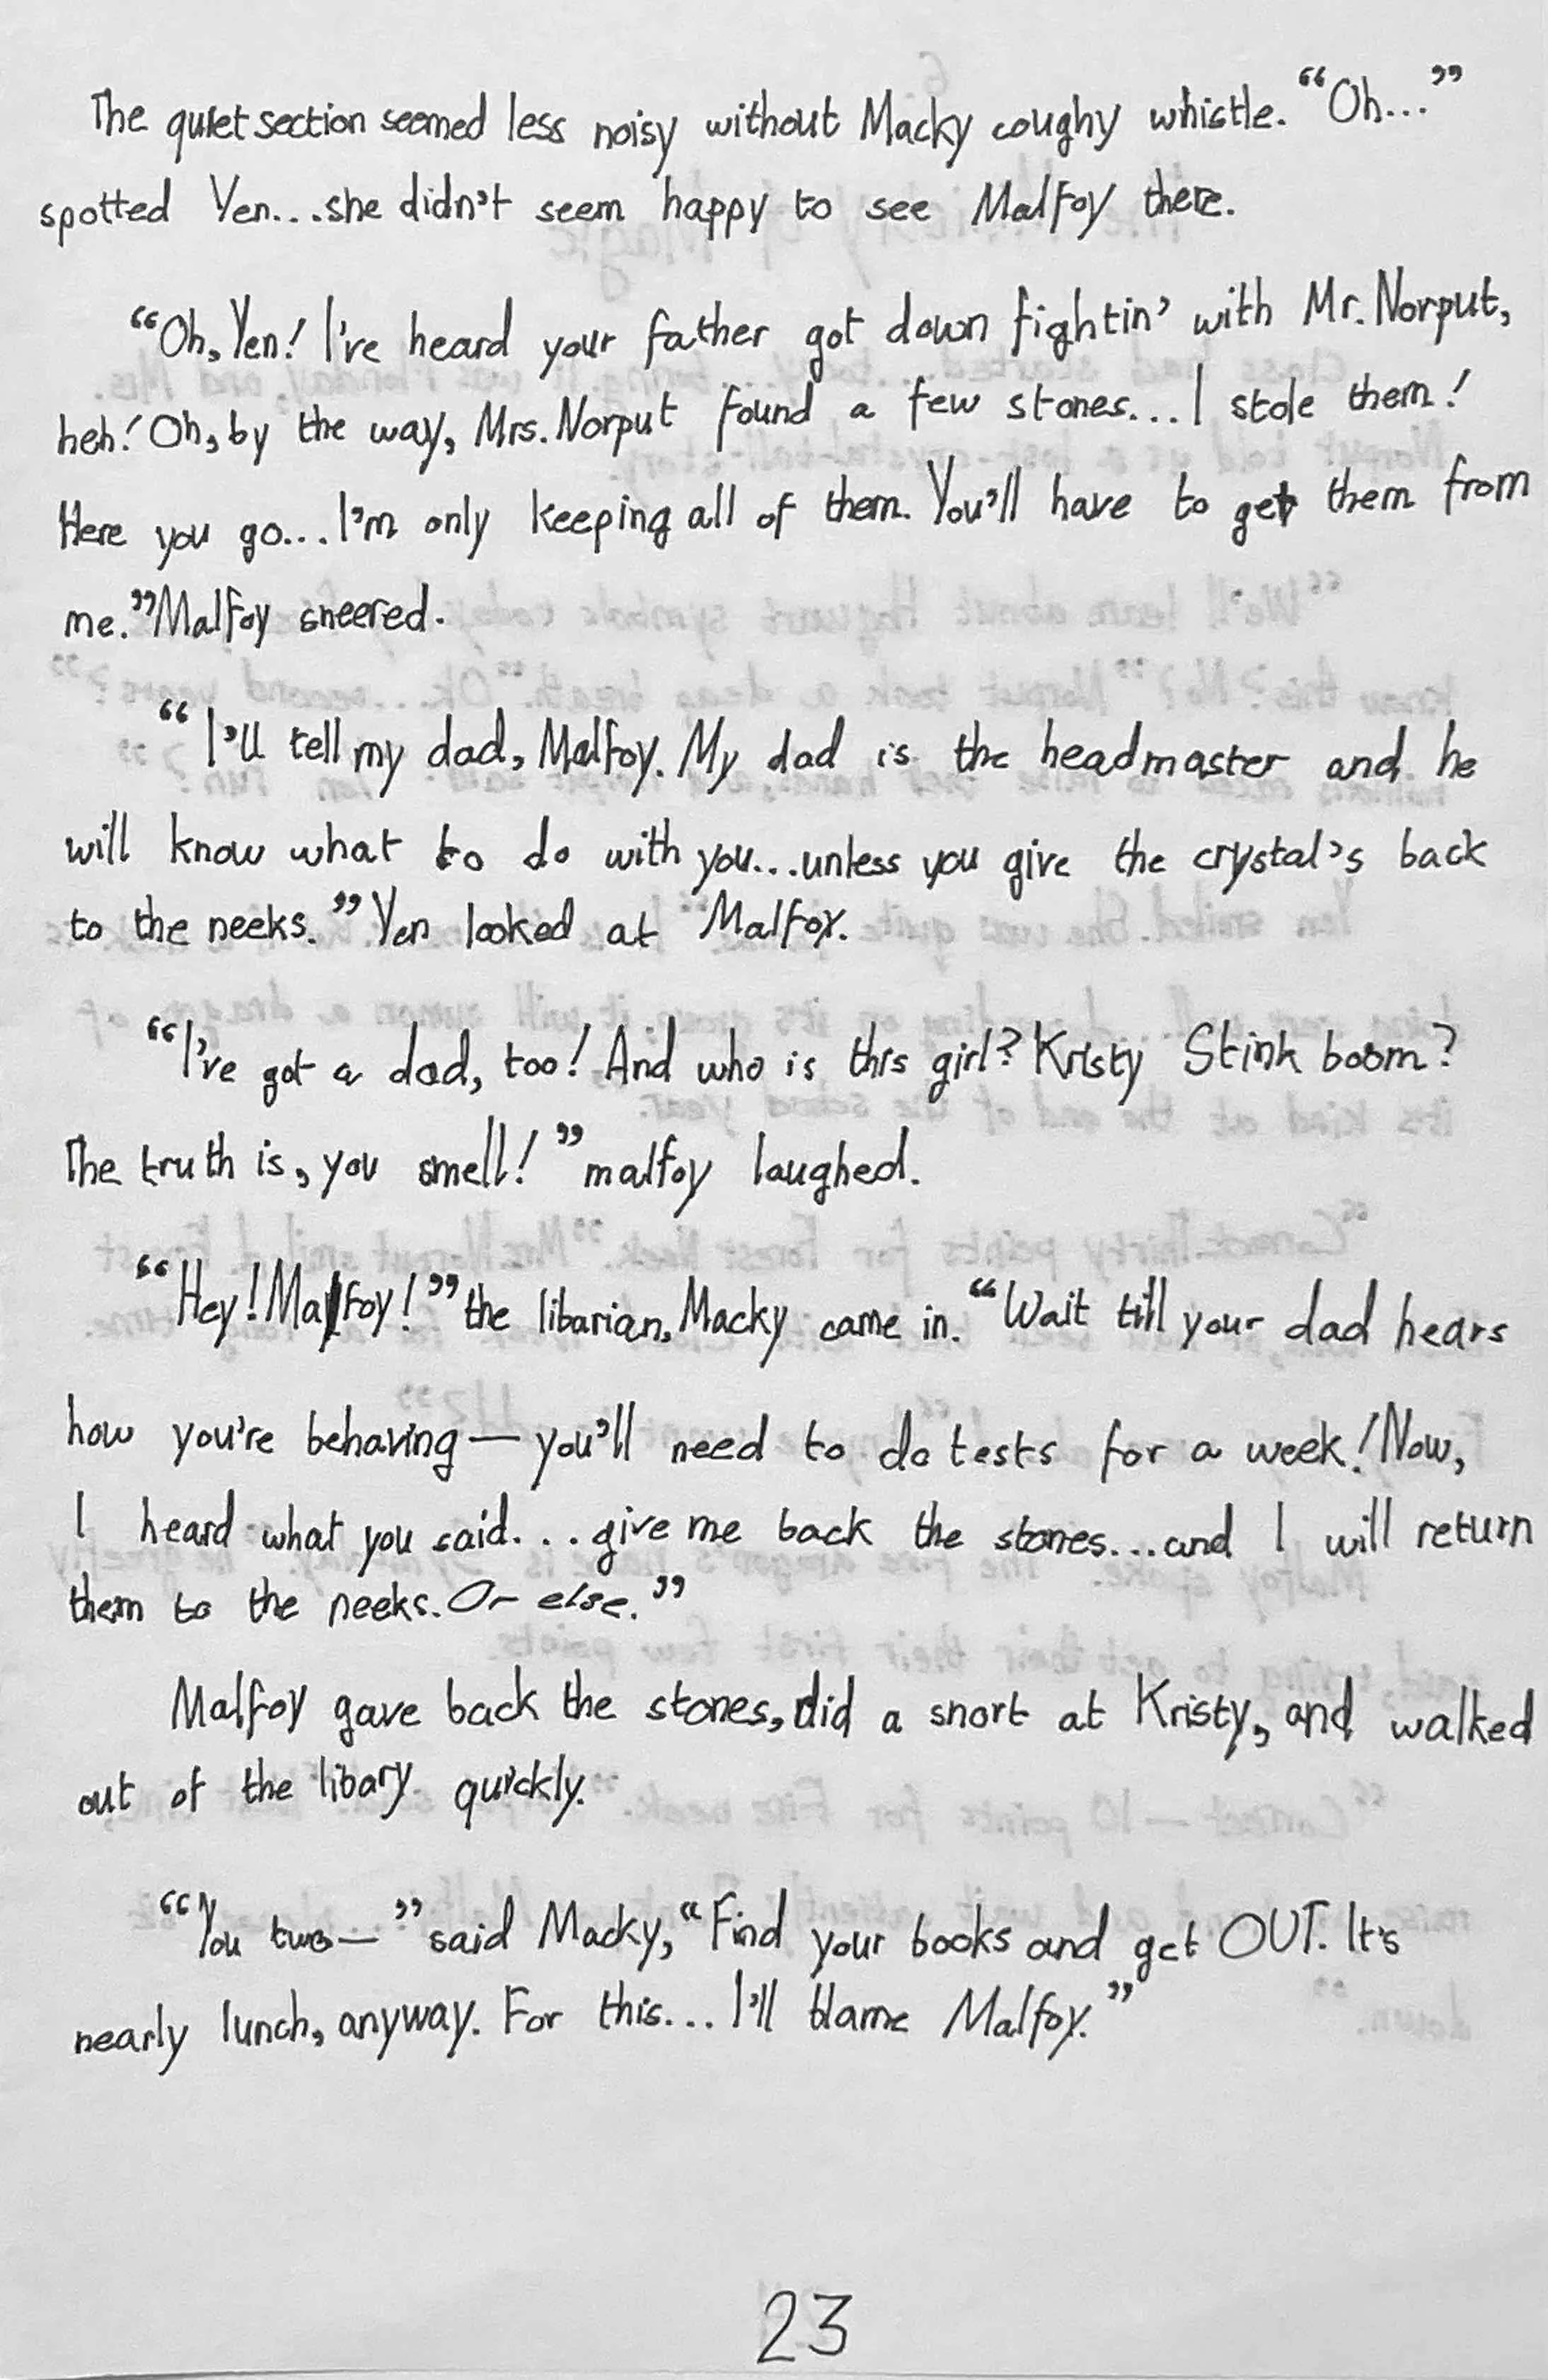 The quiet section seemed less noisy without Macky coughy whistle. “Oh...”
spotted Yen...she didn't seem happy to see Malfoy there.
“Oh, Yen! I've heard your father got down fightin' with Mr. Norput,
heh! Oh, by the way, Mrs. Norput found a few stones...I stole them!
Here you go...I'm only keeping all of them. You'll have to get them from
me.” Malfoy sneered.
“I'll tell my dad, Malfoy. My dad is the headmaster and he
will know what to do with you...unless you give the crystal's back
to the neeks.” Yen looked at Malfoy.
“I've got a dad, too! And who is this girl? Kristy Stink boom?
The truth is, you smell!” malfoy laughed.
“Hey! Malfoy!” the libarian, Macky came in. “Wait till your dad hears
how you're behaving — you'll need to do tests for a week! Now,
I heard what you said... give me back the stones...and I will return
them to the neeks. Or else.”
Malfoy gave back the stones, did a snort at Kristy, and walked
out of the libary quickly.
“You two—” said Macky, “Find your books and get OUT. It's
nearly lunch, anyway. For this... I'll blame Malfoy.”
23